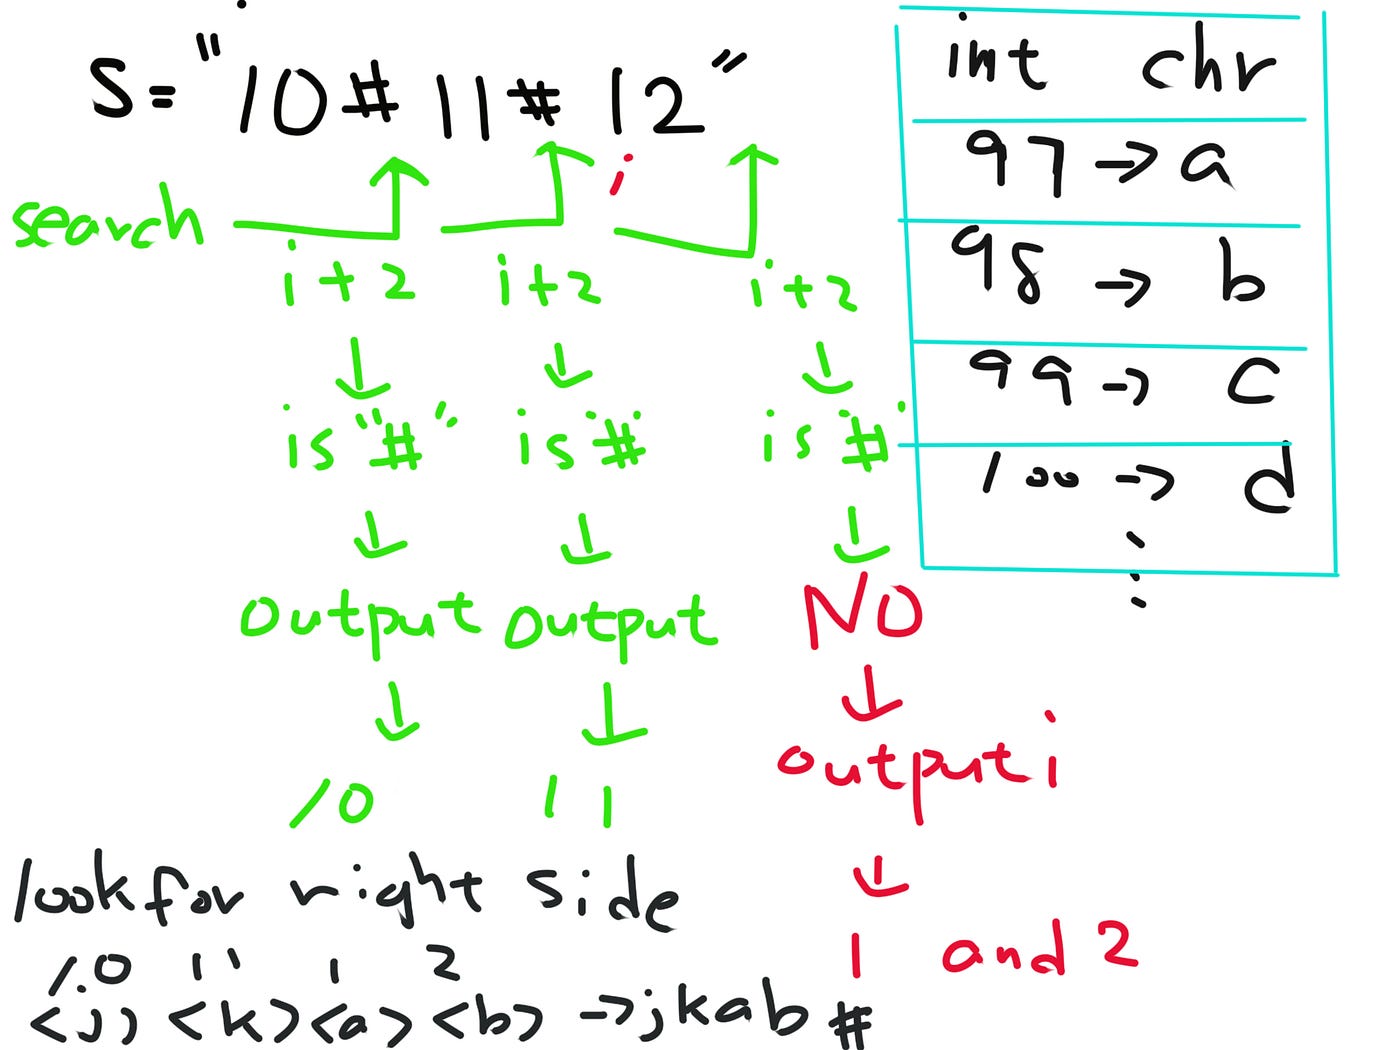 S= "10#11#12"
i
search
i+2 i+2 i+2
is "#" is '#' is '#'
output output NO
output i
10 11
1 and 2
look for right side
10 11 1 2
<j> <k> <a> <b> → jkab #
int chr
97 → a
98 → b
99 → c
100 → d